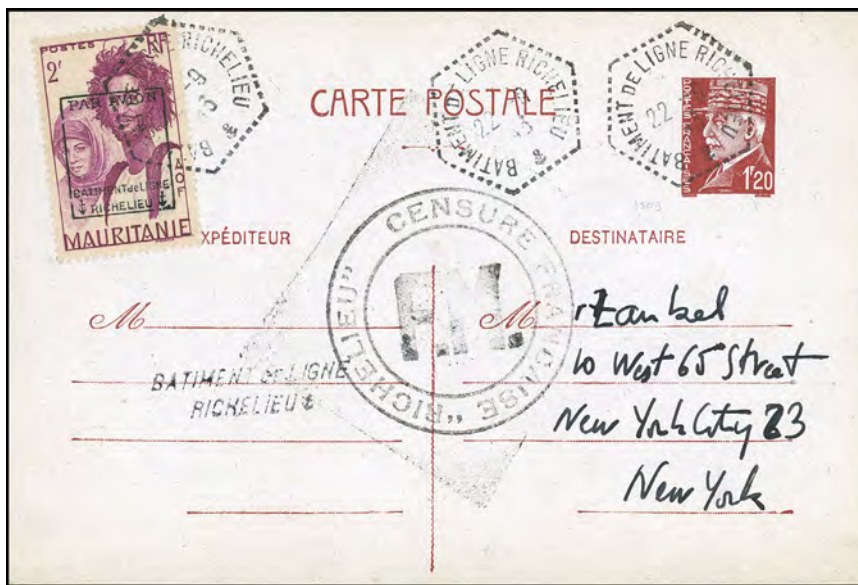 POSTES RF
2F
PAR AVION
BATIMENT de LIGNE
RICHELIEU
AOF
MAURITANIE
RICHELIEU
BAT
BATIMENT DE LIGNE RICHELIEU
22
BATIMENT DE LIGNE RICHELIEU
22
POSTES FRANÇAISES
1F20
CARTE POSTALE
XPÉDITEUR
DESTINATAIRE
CENSURE FRANÇAISE "RICHELIEU"
F.M.
M
BATIMENT de LIGNE
RICHELIEU
M Zankel
10 West 65 Street
New York City 23
New York